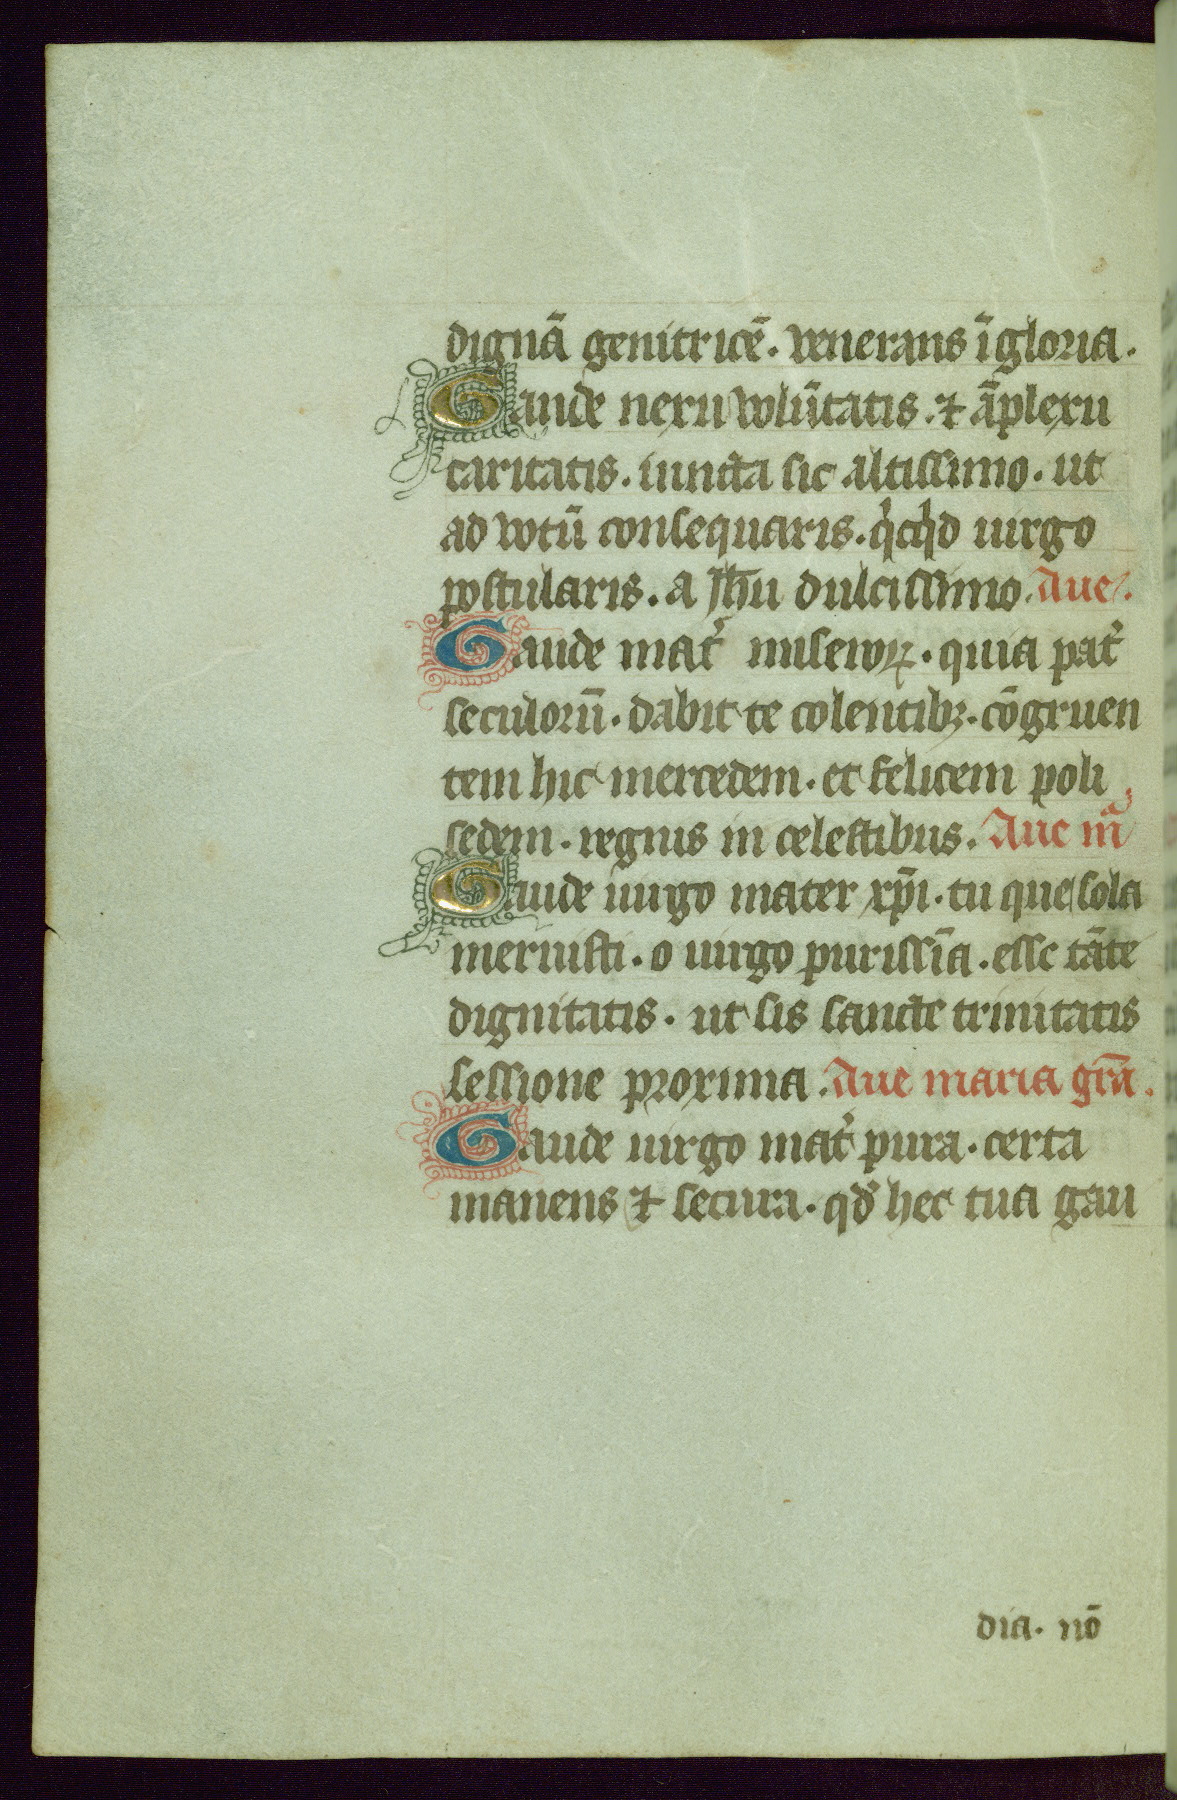 dignā genitricē. venerans ī gloria.
Gaude nexu volūtatis. ⁊ āplexu
caritatis. iuncta sic altissimo. ut
ad votū consequaris. qͥcqͥd uirgo
postularis. a Jhū dulcissimo. Aue.
Gaude mat᷑ miseroꝝ. quia pat᷑
seculorū. dabit te colentibꝫ. cōgruen
tem hic mercedem. et felicem poli
sedem. regnis in celestibus. Aue mᷓ
Gaude uirgo mater xp̄i. tu que sola
meruisti. o uirgo purissīa. esse tāte
dignitatis. ut sis sancte trinitatis
sessione proxima. Aue maria grā.
Gaude uirgo mat᷑ pura. certa
manens ⁊ secura. qď hec tua gau
dia. nō